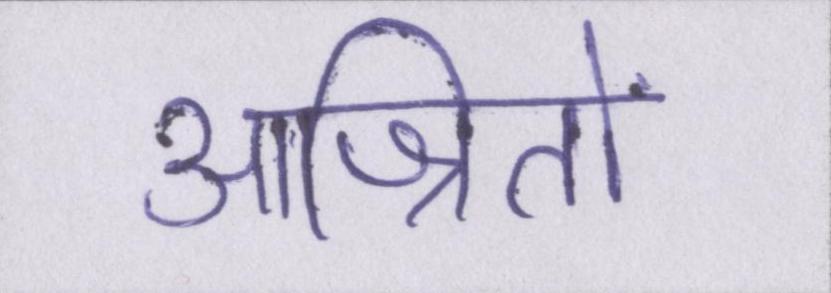 आश्रितों